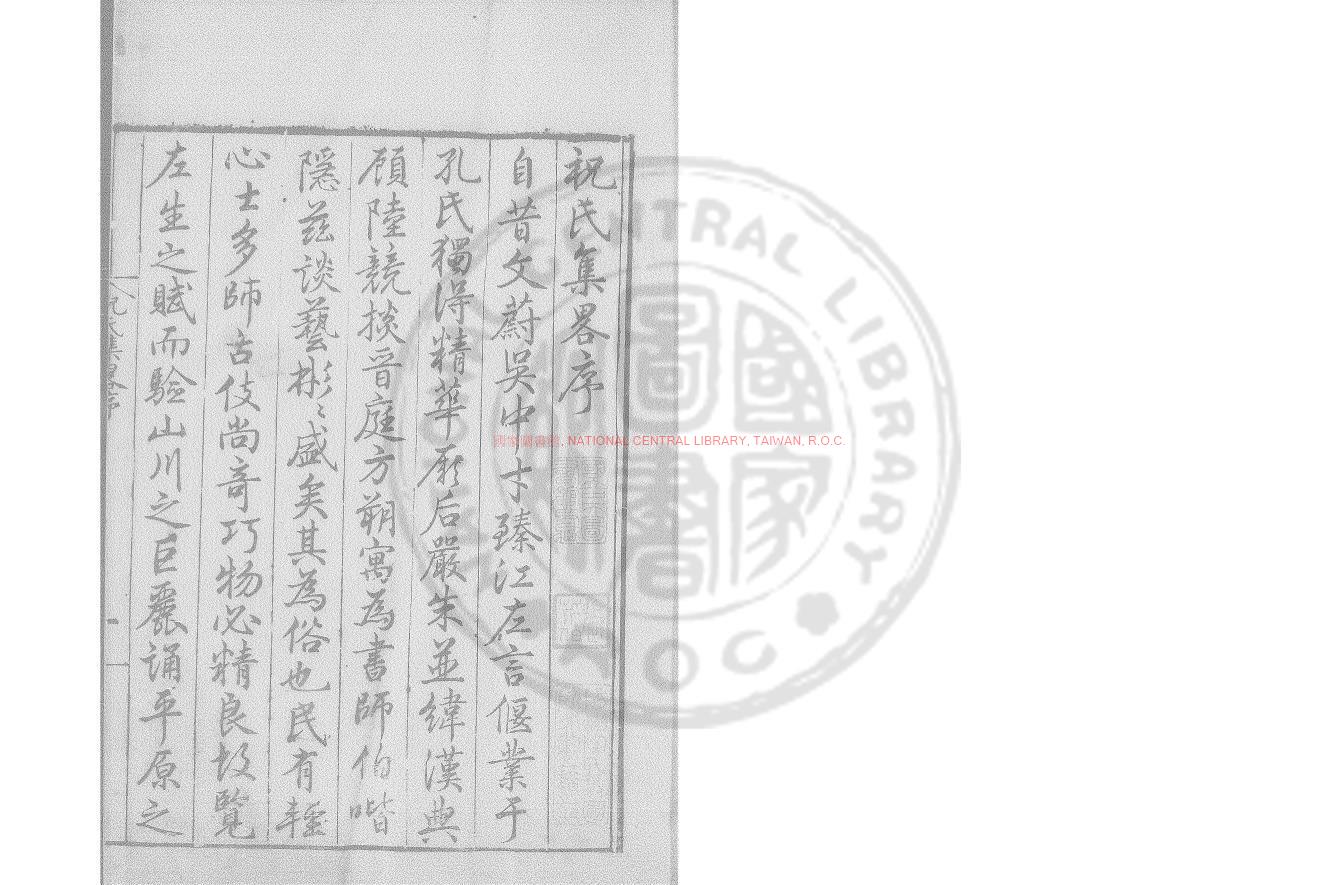 祝氏集畧序
自昔文蔚吳中才臻江左言偃業于
孔氏獨得精華厥后嚴朱並緯漢典
顧陸競掞晉庭方朔寓為書師伯喈
隱茲談藝彬〻盛矣其為俗也民有輕
心士多師古伎尚奇巧物必精良故覽
左生之賦而驗山川之巨麗誦平原之
祝氏集畧序
國家圖書館
NATIONAL CENTRAL LIBRARY, TAIWAN, R.O.C.
CENTRAL LIBRARY
ROC
國家圖書